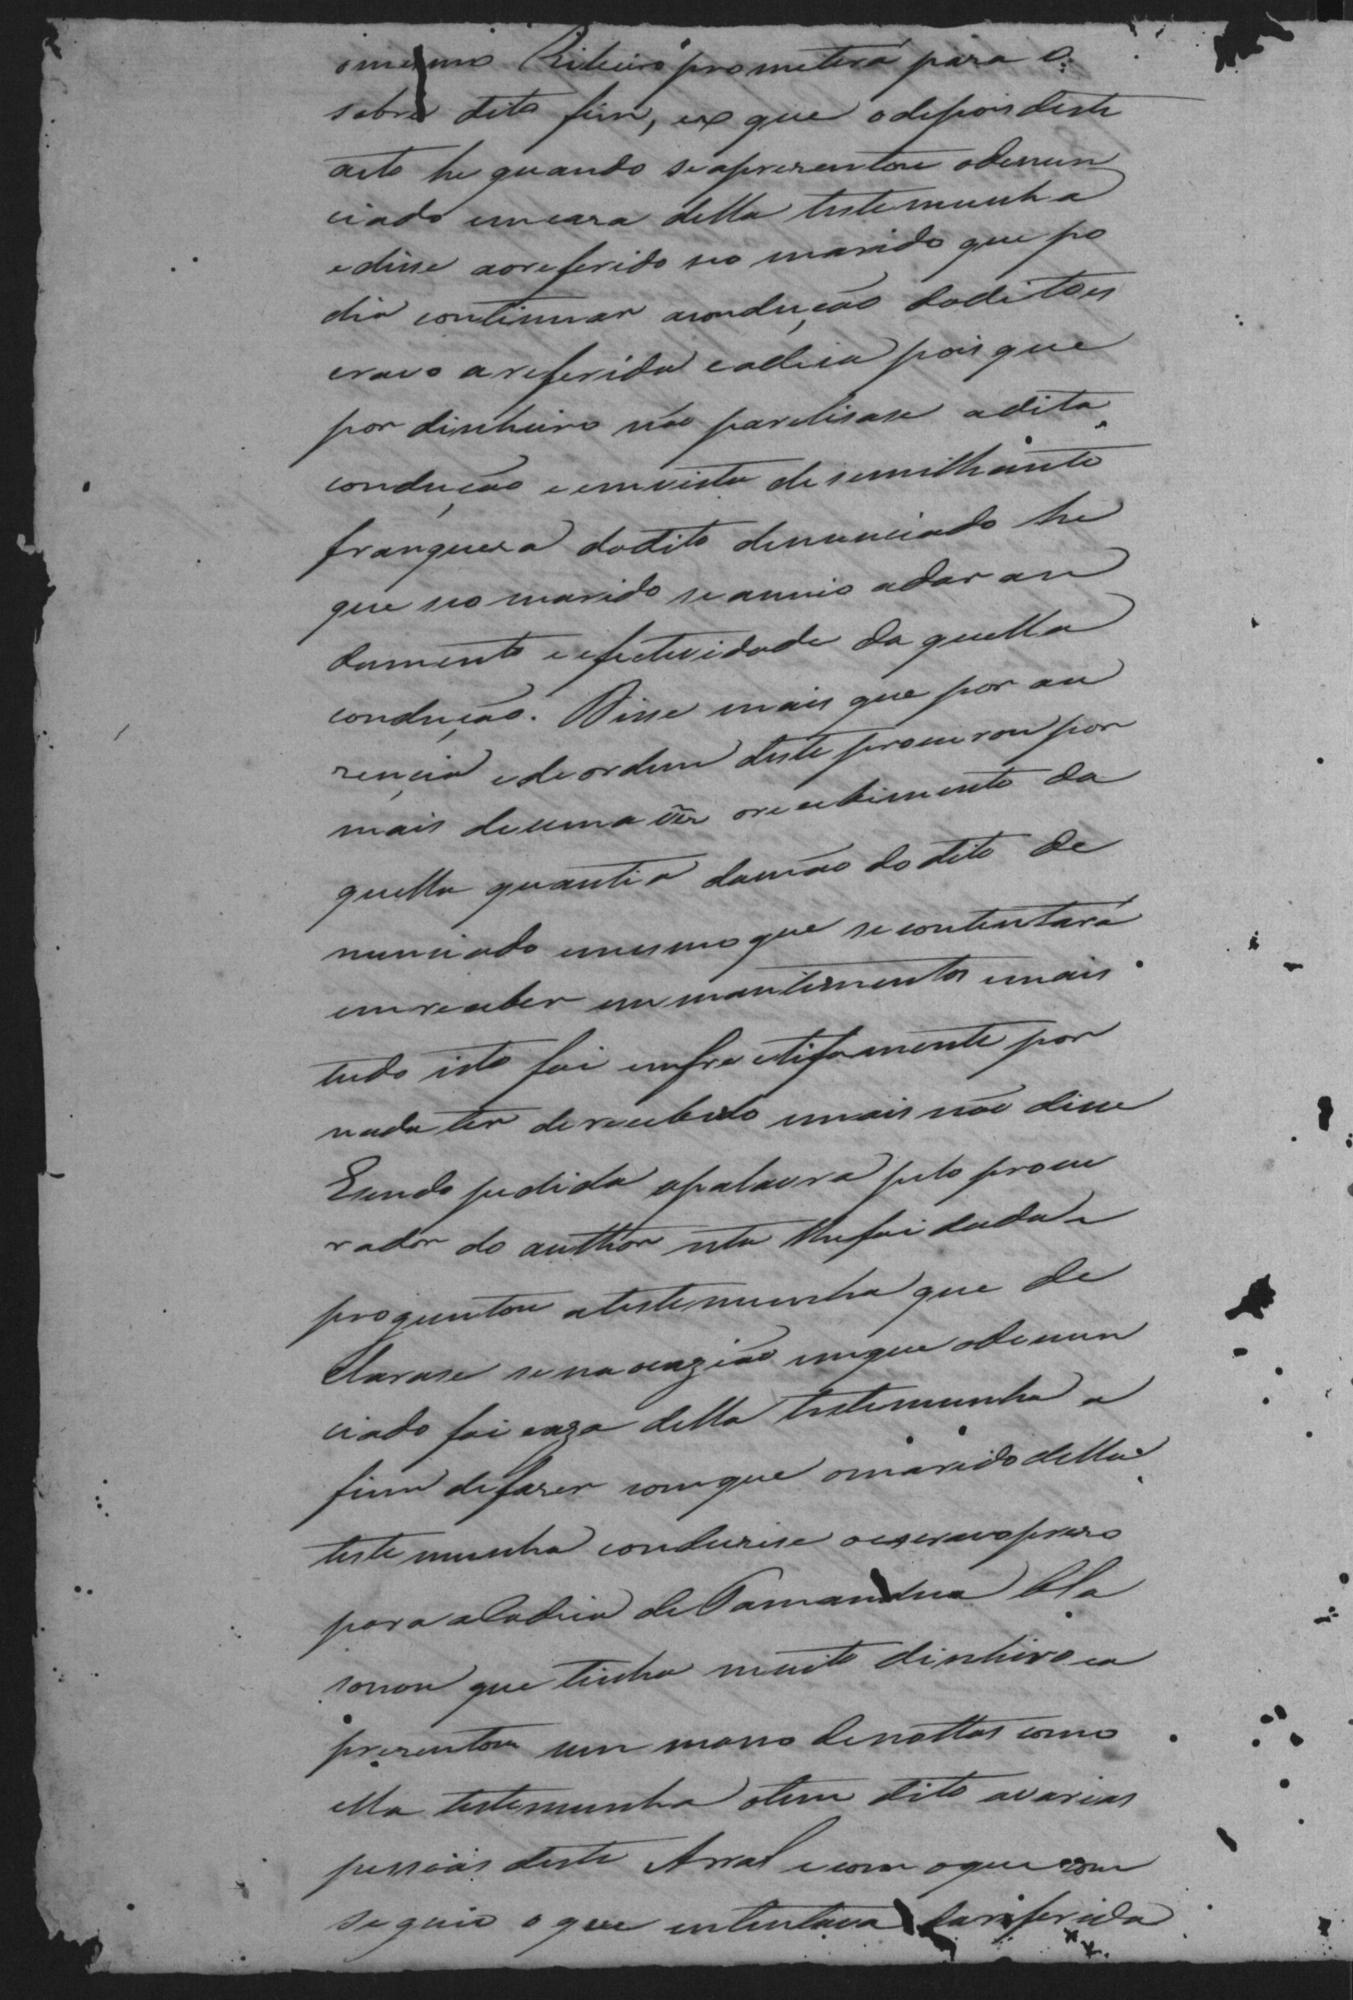 omesmo Ribeiro prometera para o
sobre dito fim, e que o depois deste
acto he quando se aprezentou odenun
ciado em caza della testemunha
e disse ao referido seo marido que po
dia continuar acondução dodito es
cravo areferida cadeia pois que
por dinheiro não paralisase adita
condução e em vista de similhante
franqueza dodito denunciado he
que seo marido se annuio adar an
damento e efectividade daquella
condução. Disse mais que por au
zencia e de ordem deste procurou por
mais de uma vez orecebimento da
quella quantia damão do dito de
nunciado emesmo que se contentará
em receber em mantimentos e mais
tudo isto foi infructifamente por
nada ter de recebido emais não disse
E sendo pedida apalavra pelo procu
rador do author esta lhe foi dada e
proguntou atestemunha que de
clarase se na ocazião em que odenun
ciado foi caza della testemunha a
fim de fazer com que omarido della
testemunha conduzise oescravo prezo
para a Cadeia de Tamandua bla
sonou que tinha muito dinheiro e a
prezentou um masso de nottas como
ella testemunha otem dito avarias
pessoas deste Arral e com o que con
seguio o que intentava da referida